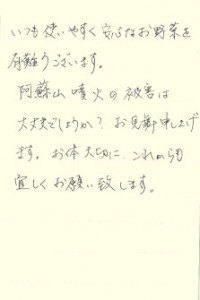 いつも使いやすく安心なお野菜を
有難うございます。
阿蘇山噴火の被害は
大丈夫でしょうか？お見舞申し上げ
ます。お体大切に、これからも
宜しくお願い致します。